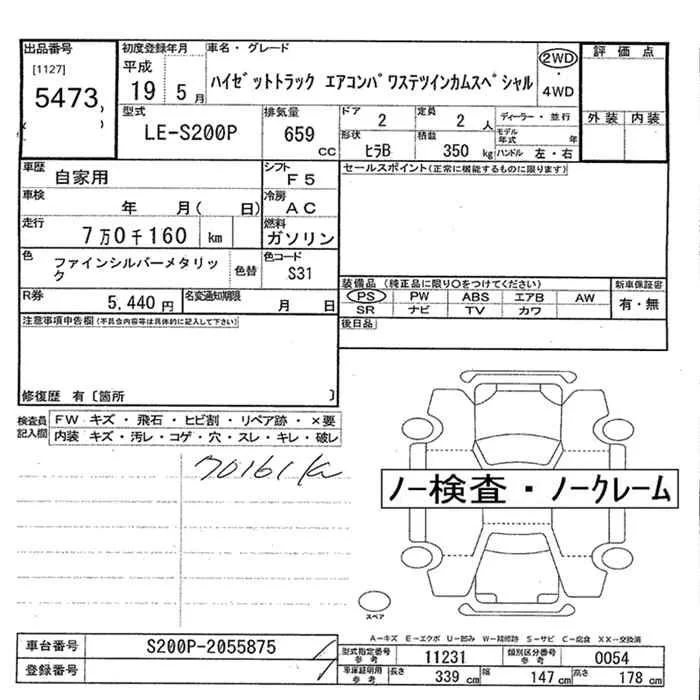 出品番号 初度登録年月 車名・グレード 評価点
[1127] 平成 ハイゼットトラック エアコンパワステツインカムスペシャル 2WD ・ 4WD
5473 19 5月
外装 内装
型式 排気量 ドア 定員 ディーラー・並行
LE-S200P 659 CC 2 2人 モデル年式 年
形状 積載 ハンドル 左・右
ヒラB 350kg
車歴 シフト セールスポイント(正常に機能するものに限ります)
自家用 F5
車検 冷房
年 月( 日) AC
走行 燃料
7万0千160 km ガソリン
色 色コード
ファインシルバーメタリック 色替 S31
装備品 (純正品に限り○をつけてください) 新車保証書
R券 名変通知期限 PS PW ABS エアB AW 有・無
5,440円 月 日 SR ナビ TV カワ
注意事項申告欄(不具合内容等は具体的に記入して下さい) 後日品
修復歴 有〔箇所 〕
検査員記入欄 FW キズ・飛石・ヒビ割・リペア跡・×要
内装 キズ・汚レ・コゲ・穴・スレ・キレ・破レ
70161K
ノー検査・ノークレーム
スペア
A-キズ E-エクボ U-凹み W-補修跡 S-サビ C-腐食 XX-交換済
車台番号 S200P-2055875 型式指定番号参考 11231 類別区分番号参考 0054
登録番号 車庫証明用参考 長さ 339cm 幅 147cm 高さ 178cm